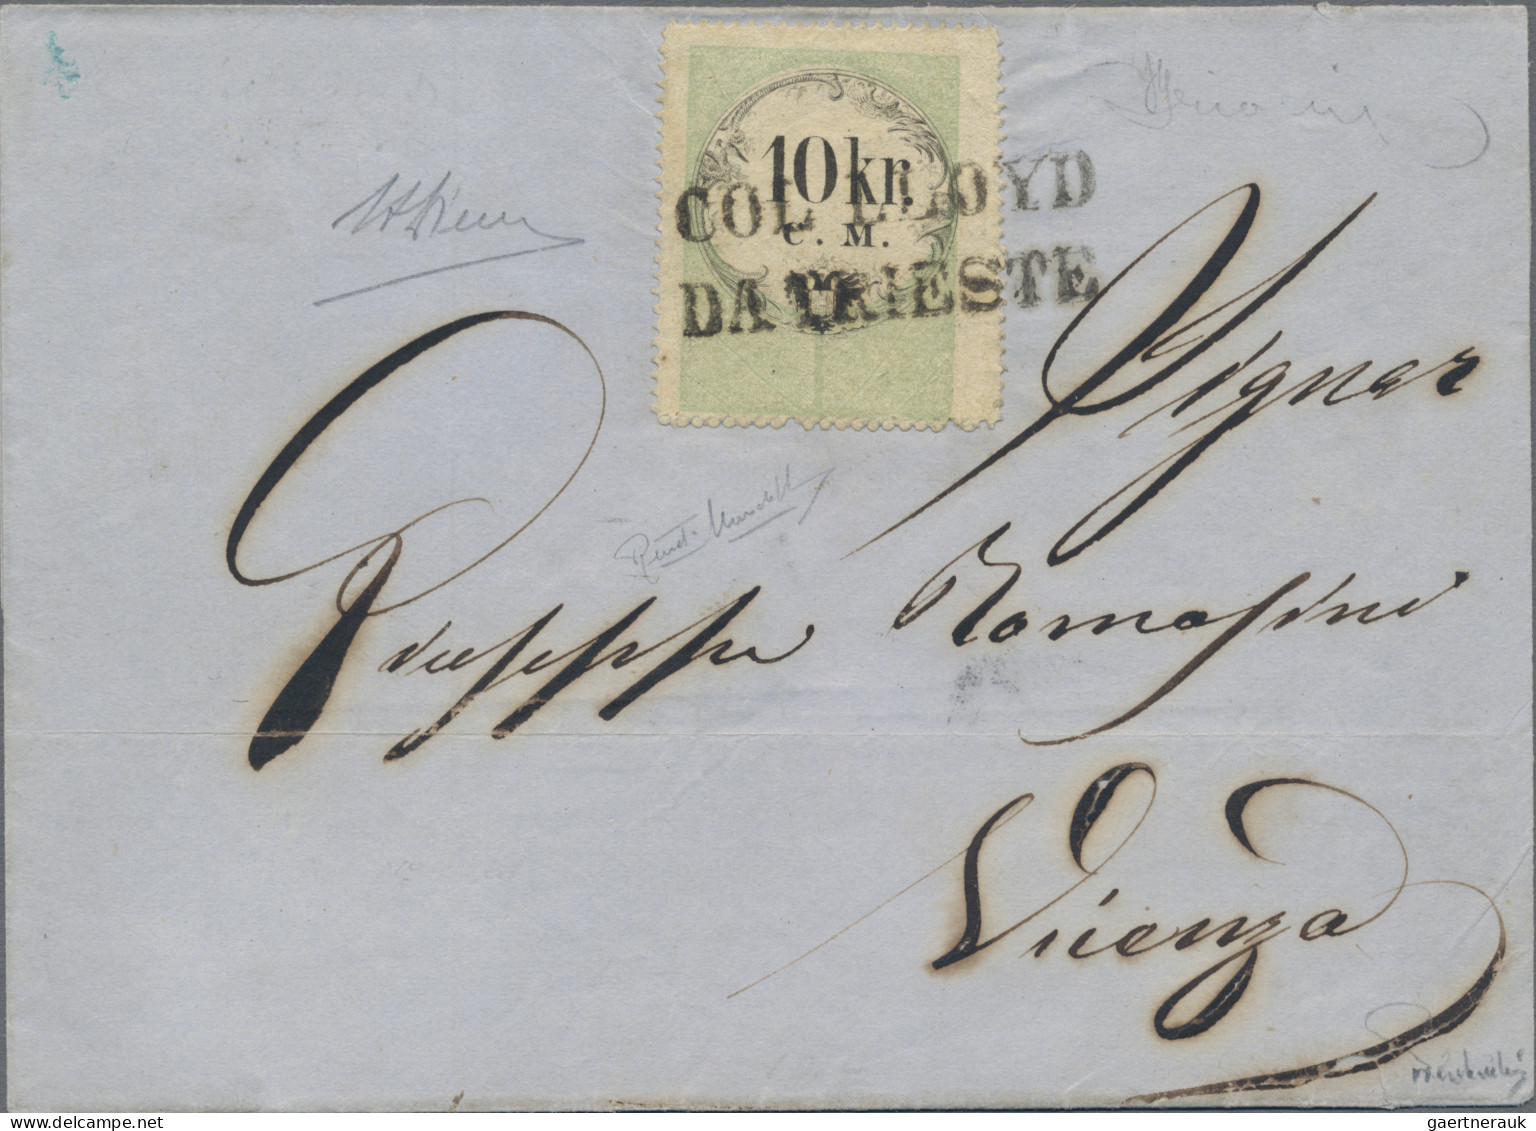 10 kr.
C. M.
COL LLOYD
DA TRIESTE
Signor
Giuseppe Tomasini
Vicenza
gaertnerauk